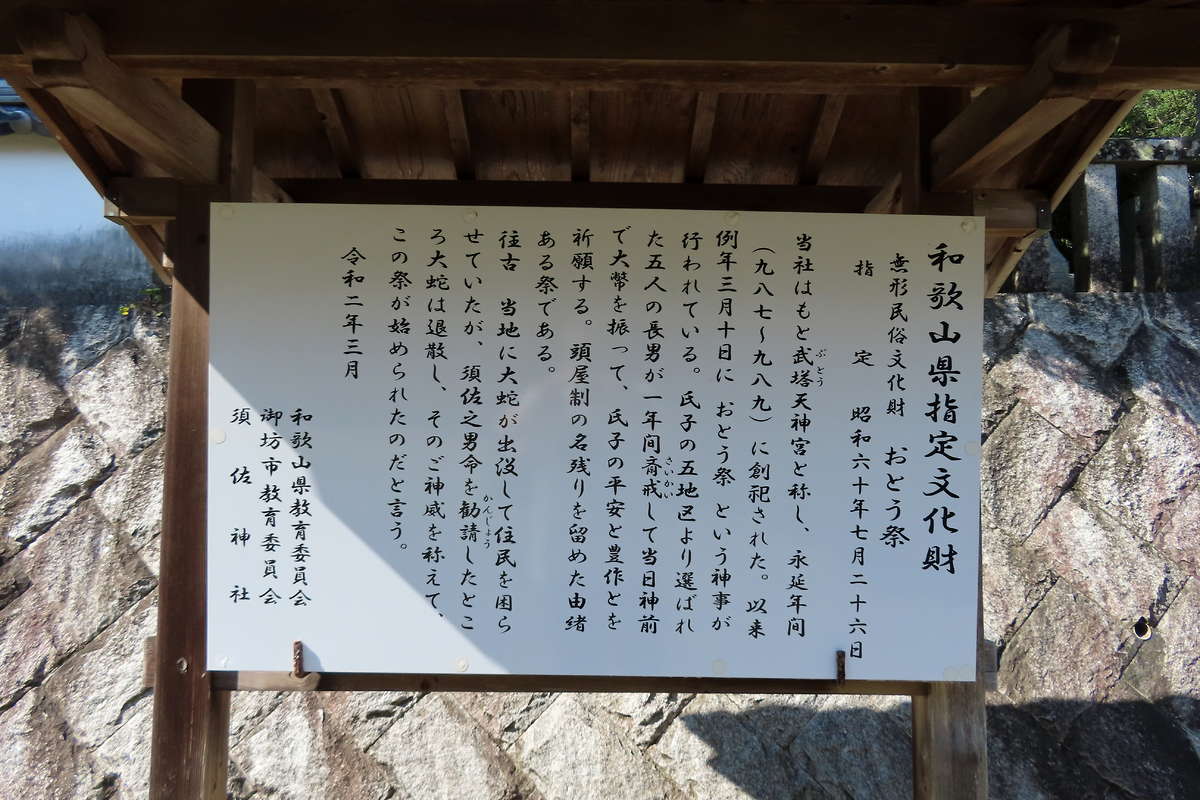 和歌山県指定文化財
無形民俗文化財　おとう祭
指　定　昭和六十年七月二十六日
当社はもと武塔天神宮と称し、永延年間
ぶとう
（九八七～九八九）に創祀された。以来
例年三月十日に　おとう祭　という神事が
行われている。氏子の五地区より選ばれ
た五人の長男が一年間斎戒して当日神前
さいかい
で大幣を振って、氏子の平安と豊作とを
祈願する。頭屋制の名残りを留めた由緒
ある祭である。
往古　当地に大蛇が出没して住民を困ら
せていたが、須佐之男命を勧請したとこ
かんじょう
ろ大蛇は退散し、そのご神威を称えて、
この祭が始められたのだと言う。
令和二年三月
和歌山県教育委員会
御坊市教育委員会
須佐神社